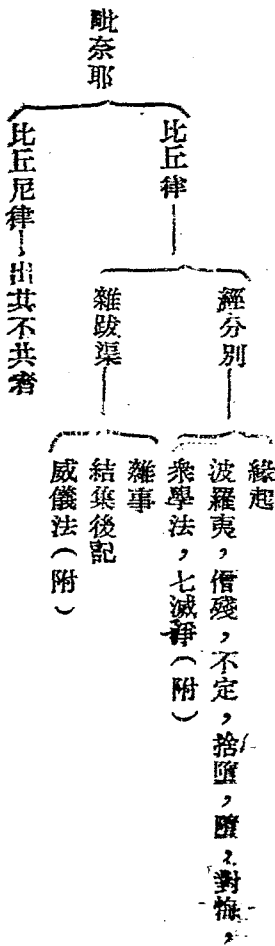 毗奈耶
比丘律
經分別
緣起
波羅夷，僧殘，不定，捨墮，墮，對悔，
眾學法，七滅諍（附）
雜跋渠
雜事
結集後記
威儀法（附）
比丘尼律—出其不共者